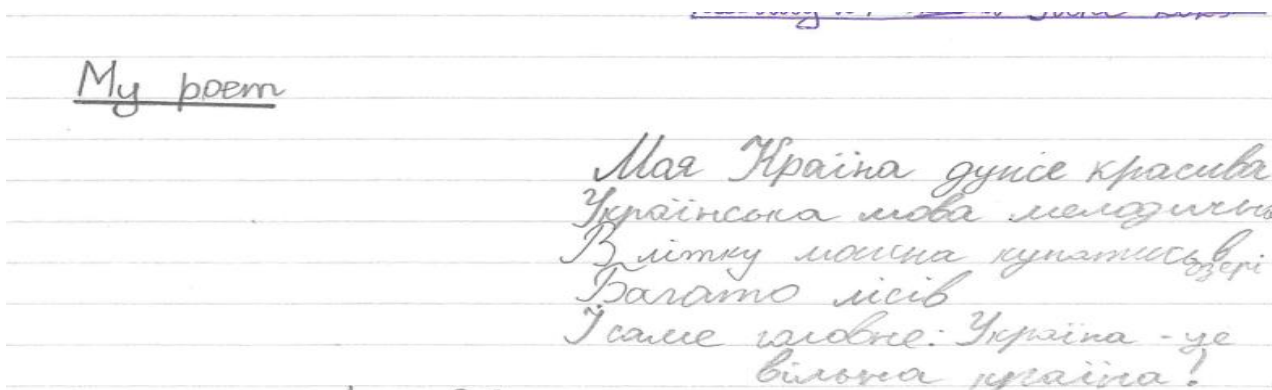 My poem
Мая Країна дуже красива
Українська мова мелодична
В літку можна купатись в озері
Багато лісів
І саме головне: Україна - це
вільна країна!